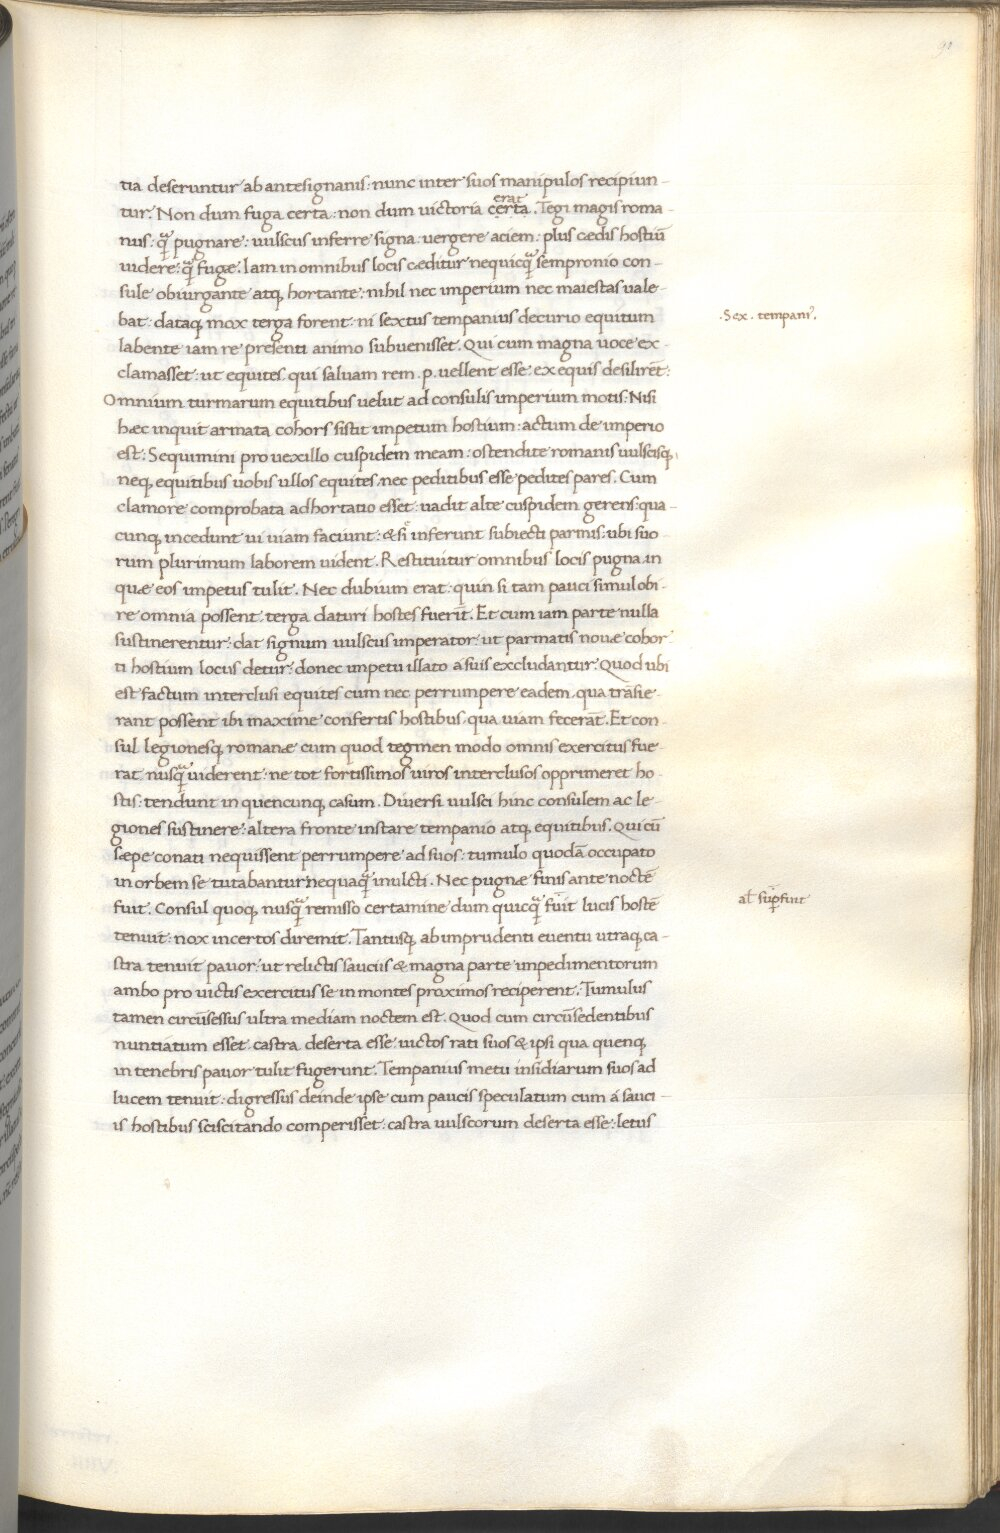 90
tia deseruntur ab antesignanis: nunc inter suos manipulos recipiun-
tur. Non dum fuga certa: non dum victoria certa erat. Tegi magis roma-
nus: qᷓ pugnare: uulscus inferre signa: uergere aciem: plus cædis hostiū
uidere: qᷓ fugæ. Iam in omnibus locis cæditur nequicqᷓ sempronio con-
sule obiurgante atq; hortante: nihil nec imperium nec maiestas uale-
bat: dataq; mox terga forent: ni sextus tempanius decurio equitum
·Sex. tempaniꝰ.
labente iam re presenti animo subuenisset. Qui cum magna uoce ex-
clamasset: ut equites qui saluam rem .p. uellent esse: ex equis desilirēt:
Omnium turmarum equitibus uelut ad consulis imperium motis: Nisi
hæc inquit armata cohors sistit impetum hostium: actum de imperio
est: Sequimini pro uexillo cuspidem meam: ostendite romanis uulscisq;
neq; equitibus uobis ullos equites, nec peditibus esse pedites pares. Cum
clamore comprobata adhortatio esset: uadit alte cuspidem gerens: qua-
cunq; incedunt ui uiam faciunt: & se inferunt subiecti parmis: ubi suo-
rum plurimum laborem uident. Restituitur omnibus locis pugna in
quæ eos impetus tulit. Nec dubium erat: quin si tam pauci simul obi-
re omnia possent: terga daturi hostes fuerīt. Et cum iam parte nulla
sustinerentur: dat signum uulscus imperator: ut parmatis nouæ cohor
ti hostium locus detur: donec impetu illato a suis excludantur. Quod ubi
est factum interclusi equites cum nec perrumpere eadem, qua trāsie-
rant possent ibi maxime confertis hostibus, qua uiam fecerāt. Et con-
sul legionesq; romanæ cum quod tegmen modo omnis exercitus fue-
rat, nusqᷓ uiderent: ne tot fortissimos uiros interclusos opprimeret ho-
stis: tendunt in quencunq; casum. Diuersi uulsci hinc consulem ac le-
giones sustinere: altera fronte instare tempanio atq; equitibus. Qui cū
sæpe conati nequissent perrumpere ad suos: tumulo quodā occupato
in orbem se tutabantur nequaqᷓ inulcti. Nec pugnæ finis ante noctē
fuit. Consul quoq; nusqᷓ remisso certamine dum quicqᷓ fuit lucis hostē
al' suꝑfuit
tenuit: nox incertos diremit. Tantusq; ab imprudenti euentu utraq; ca-
stra tenuit pauor: ut relictis sauciis & magna parte impedimentorum
ambo pro uictis exercitus se in montes proximos reciperent. Tumulus
tamen circūsessus ultra mediam noctem est. Quod cum circūsedentibus
nuntiatum esset castra deserta esse: uictos rati suos & ipsi qua quenq;
in tenebris pauor tulit fugerunt. Tempanius metu insidiarum suos ad
lucem tenuit: digressus deinde ipse cum paucis speculatum cum á sauci-
is hostibus sciscitando comperisset: castra uulscorum deserta esse: letus